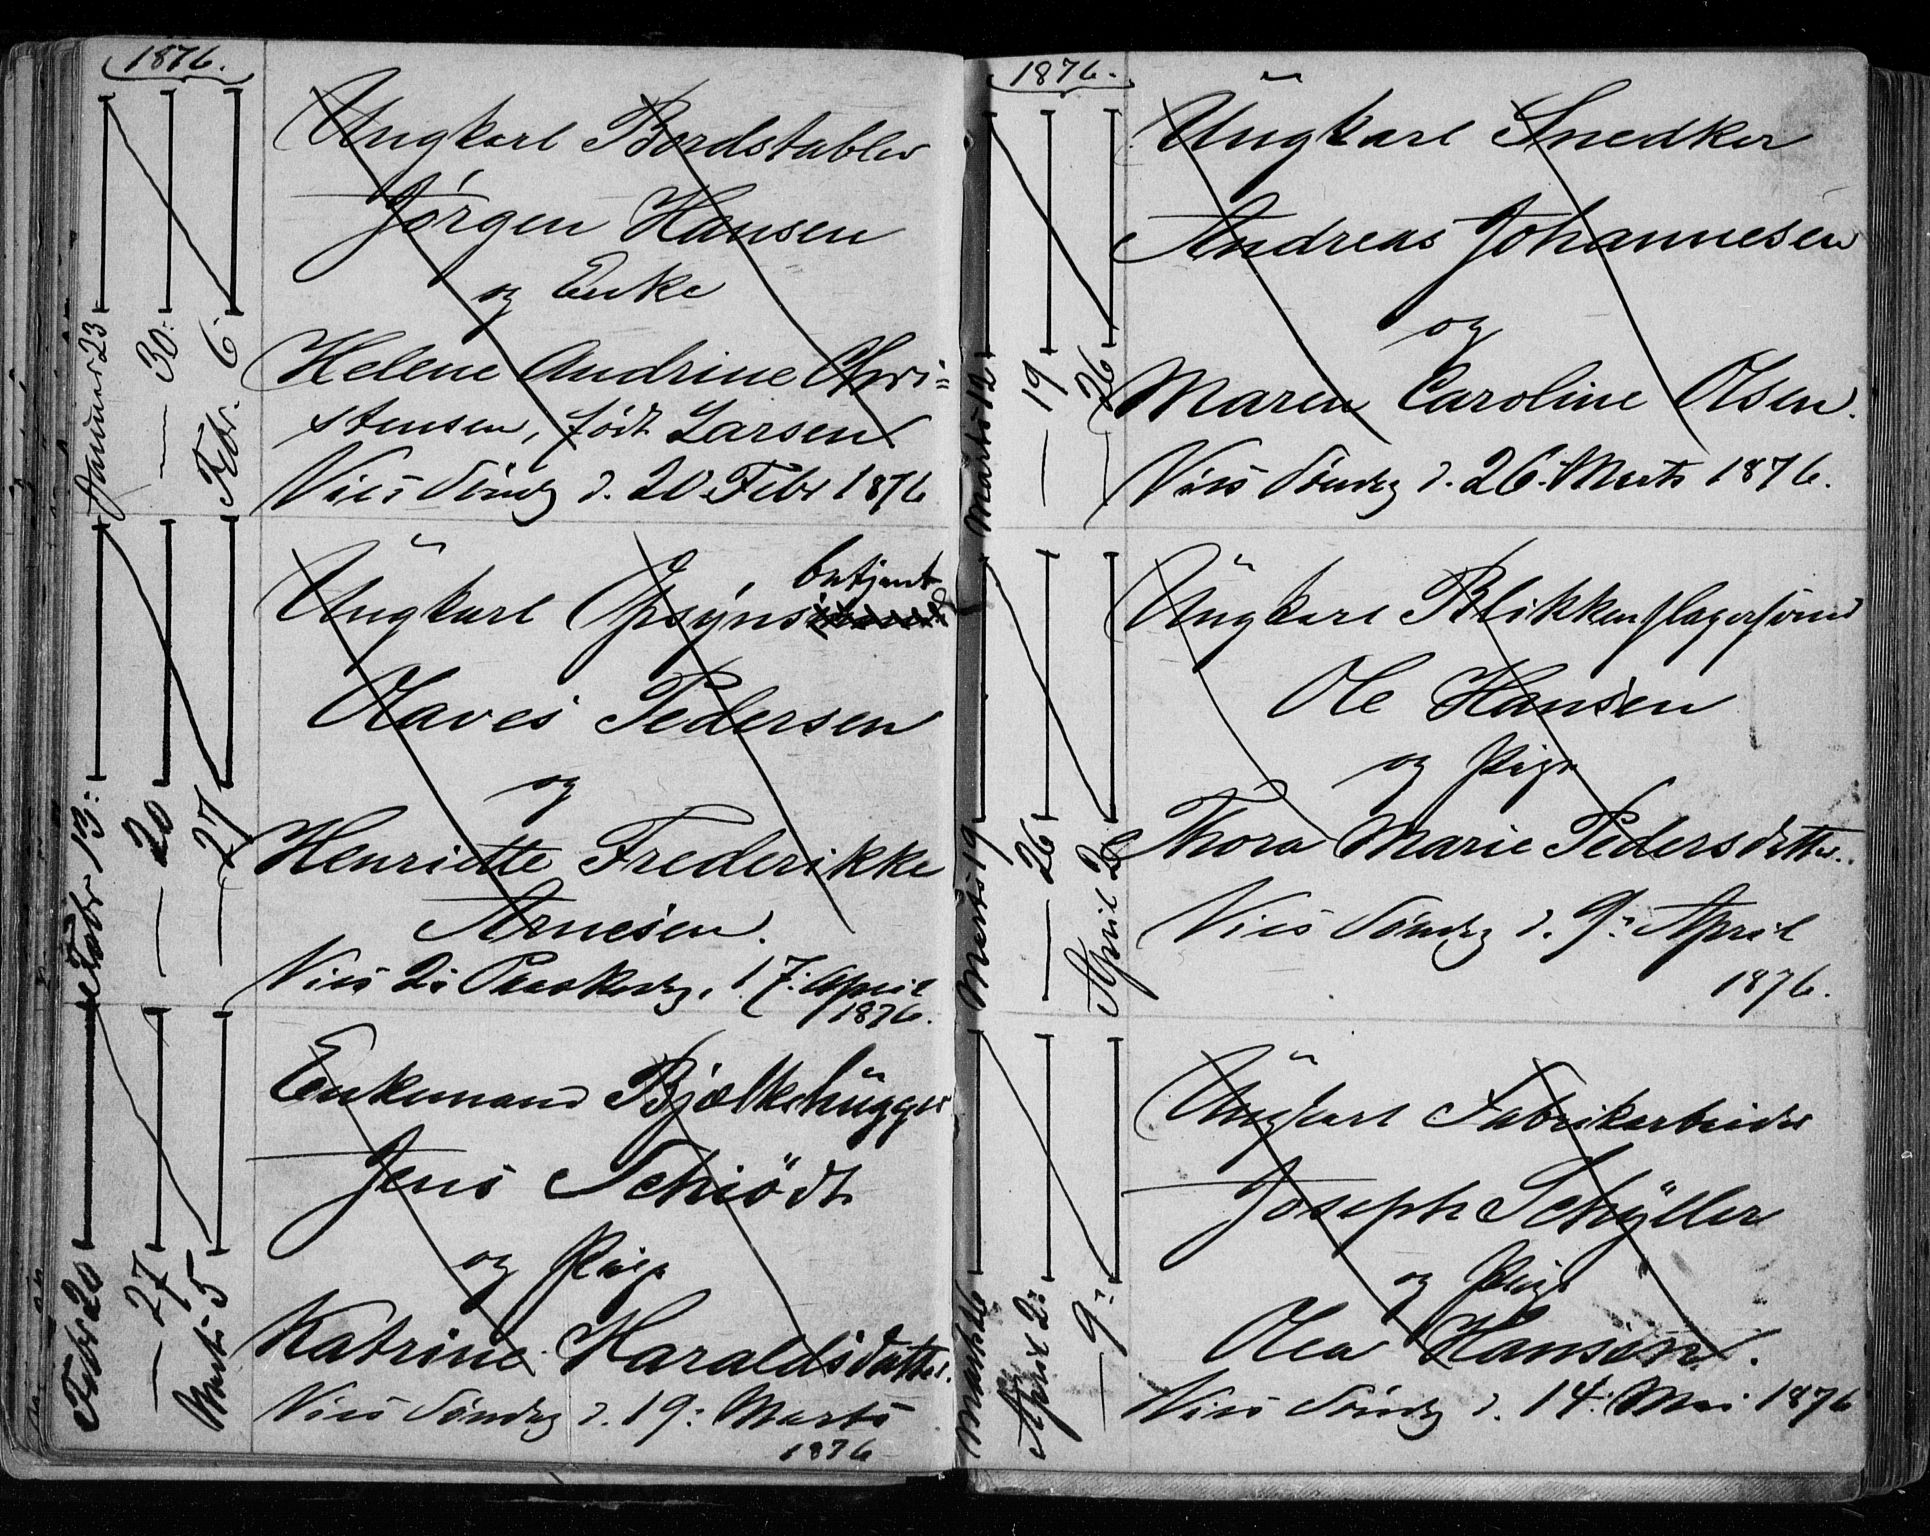 1876.
Januar 23
— 30:
Febr. 6
Ungkarl Bordstabler
Jörgen Hansen
og Enke
Helene Andrine Chri=
stensen, født Larsen
Vies Söndag d. 20 Febr 1876
Febr 13:
— 20
— 27
Ungkarl Opsyns betjent
Olaves Pedersen
og
Henriette Frederikke
Arnesen.
Vies 2: Paaskedag, 17: April
1876.
Febr 20
— 27
Marts 5
Enkemand Bjælkehugger
Jens Schiödt
og Pige
Katrine Haraldsdatter.
Vies Söndag d. 19: Marts
1876
1876.
Marts 12
— 19
— 26
Ungkarl Snedker
Andreas Johannesen
og
Maren Caroline Olsen.
Vies Söndag d. 26. Marts 1876.
Marts 19
— 26
April 2
Ungkarl Blikkenslagersvend
Ole Hansen
og Pige
Thora Marie Pedersdatter.
Vies Söndag d. 9: April
1876.
April 2:
— 9:
Ungkarl Fabrikarbeider
Joseph Schÿller
og Pige
Olea Hansen.
Vies Söndag d. 14: Mai 1876